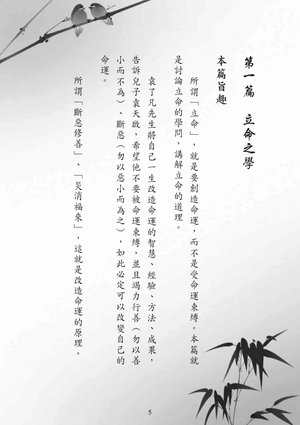 第一篇　立命之學
本篇旨趣
所謂「立命」，就是要創造命運，而不是受命運束縛。本篇就
是討論立命的學問，講解立命的道理。
袁了凡先生將自己一生改造命運的智慧、經驗、方法、成果，
告訴兒子袁天啟，希望他不要被命運束縛，並且竭力行善（勿以善
小而不為），斷惡（勿以惡小而為之），如此必定可以改變自己的
命運。
所謂「斷惡修善」、「災消福來」，這就是改造命運的原理。
5